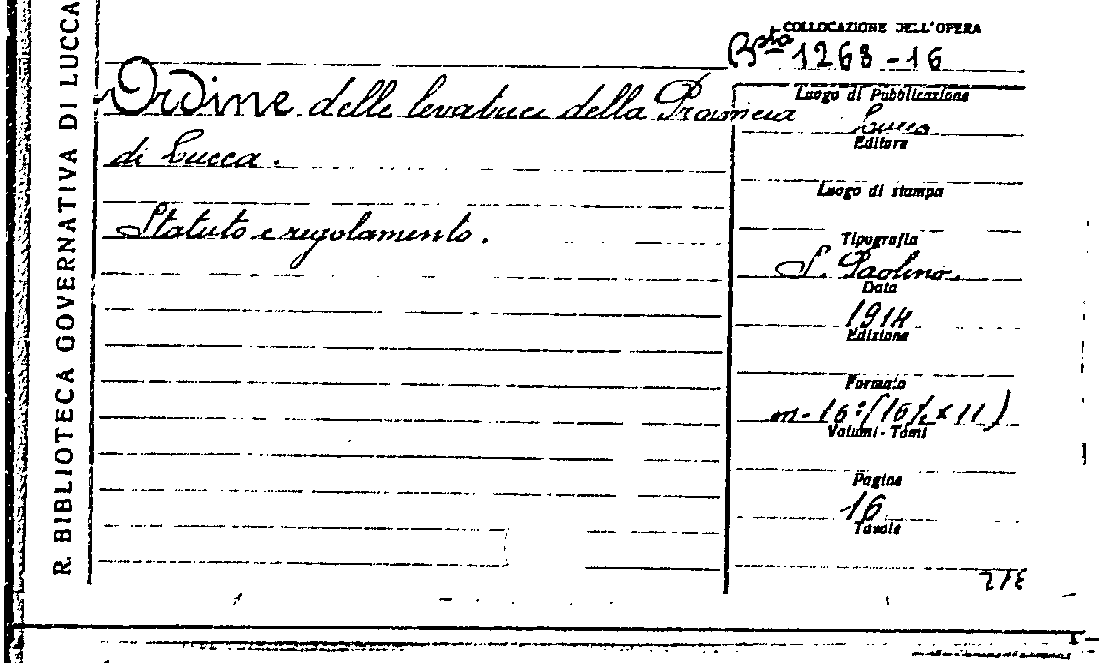 R. BIBLIOTECA GOVERNATIVA DI LUCCA
COLLOCAZIONE DELL'OPERA
Bsta 1268-16
Ordine delle levatrici della Provincia
di Lucca.
Statuto e regolamento.
Luogo di Pubblicazione
Lucca
Editore
Luogo di stampa
Tipografia
S. Paolino.
Data
1914
Edizione
Formato
in-16º (16½ x 11)
Volumi - Tomi
Pagine
16
Tavole